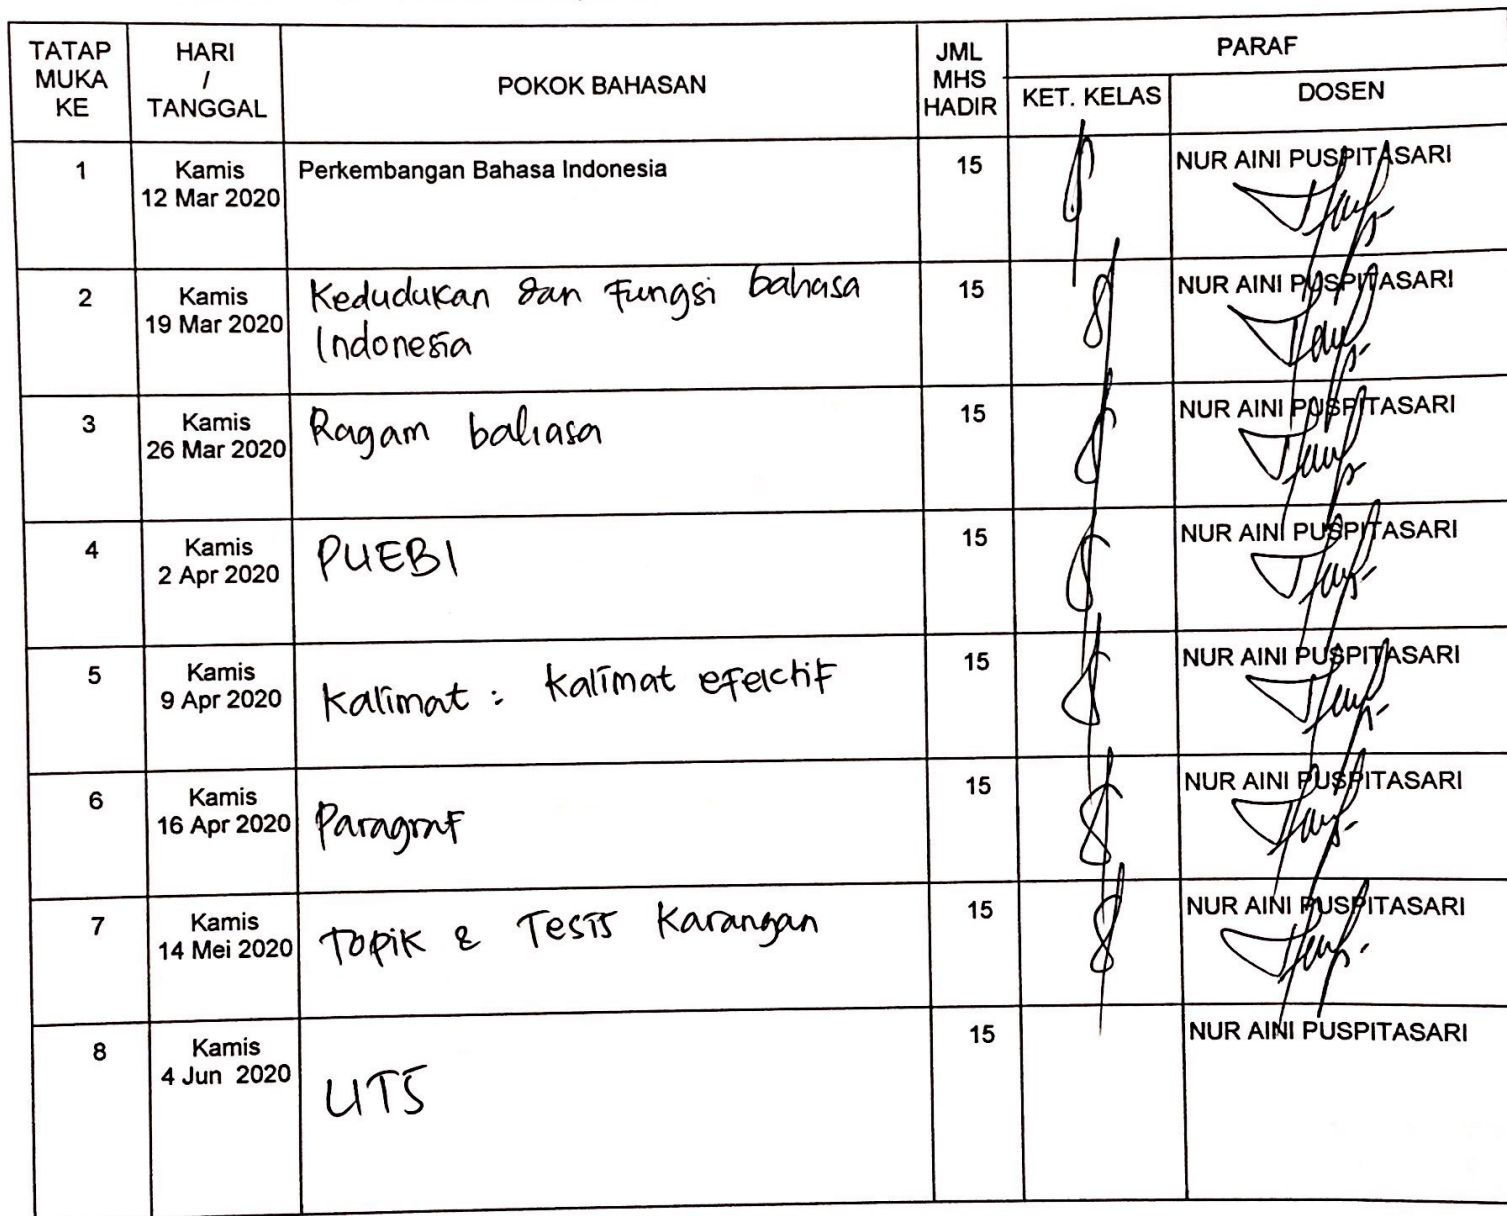 TATAP MUKA KE
HARI / TANGGAL
POKOK BAHASAN
JML MHS HADIR
PARAF
KET. KELAS
DOSEN
1
Kamis
12 Mar 2020
Perkembangan Bahasa Indonesia
15
NUR AINI PUSPITASARI
2
Kamis
19 Mar 2020
Kedudukan dan Fungsi bahasa
Indonesia
15
NUR AINI PUSPITASARI
3
Kamis
26 Mar 2020
Ragam bahasa
15
NUR AINI PUSPITASARI
4
Kamis
2 Apr 2020
PUEBI
15
NUR AINI PUSPITASARI
5
Kamis
9 Apr 2020
Kalimat : Kalimat efektif
15
NUR AINI PUSPITASARI
6
Kamis
16 Apr 2020
Paragraf
15
NUR AINI PUSPITASARI
7
Kamis
14 Mei 2020
Topik & Tesis Karangan
15
NUR AINI PUSPITASARI
8
Kamis
4 Jun 2020
UTS
15
NUR AINI PUSPITASARI